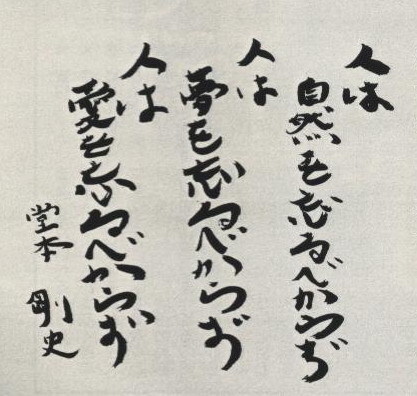 人は
自然を忘るべからず
人は
夢を忘るべからず
人は
愛を忘るべからず
堂本 剛史